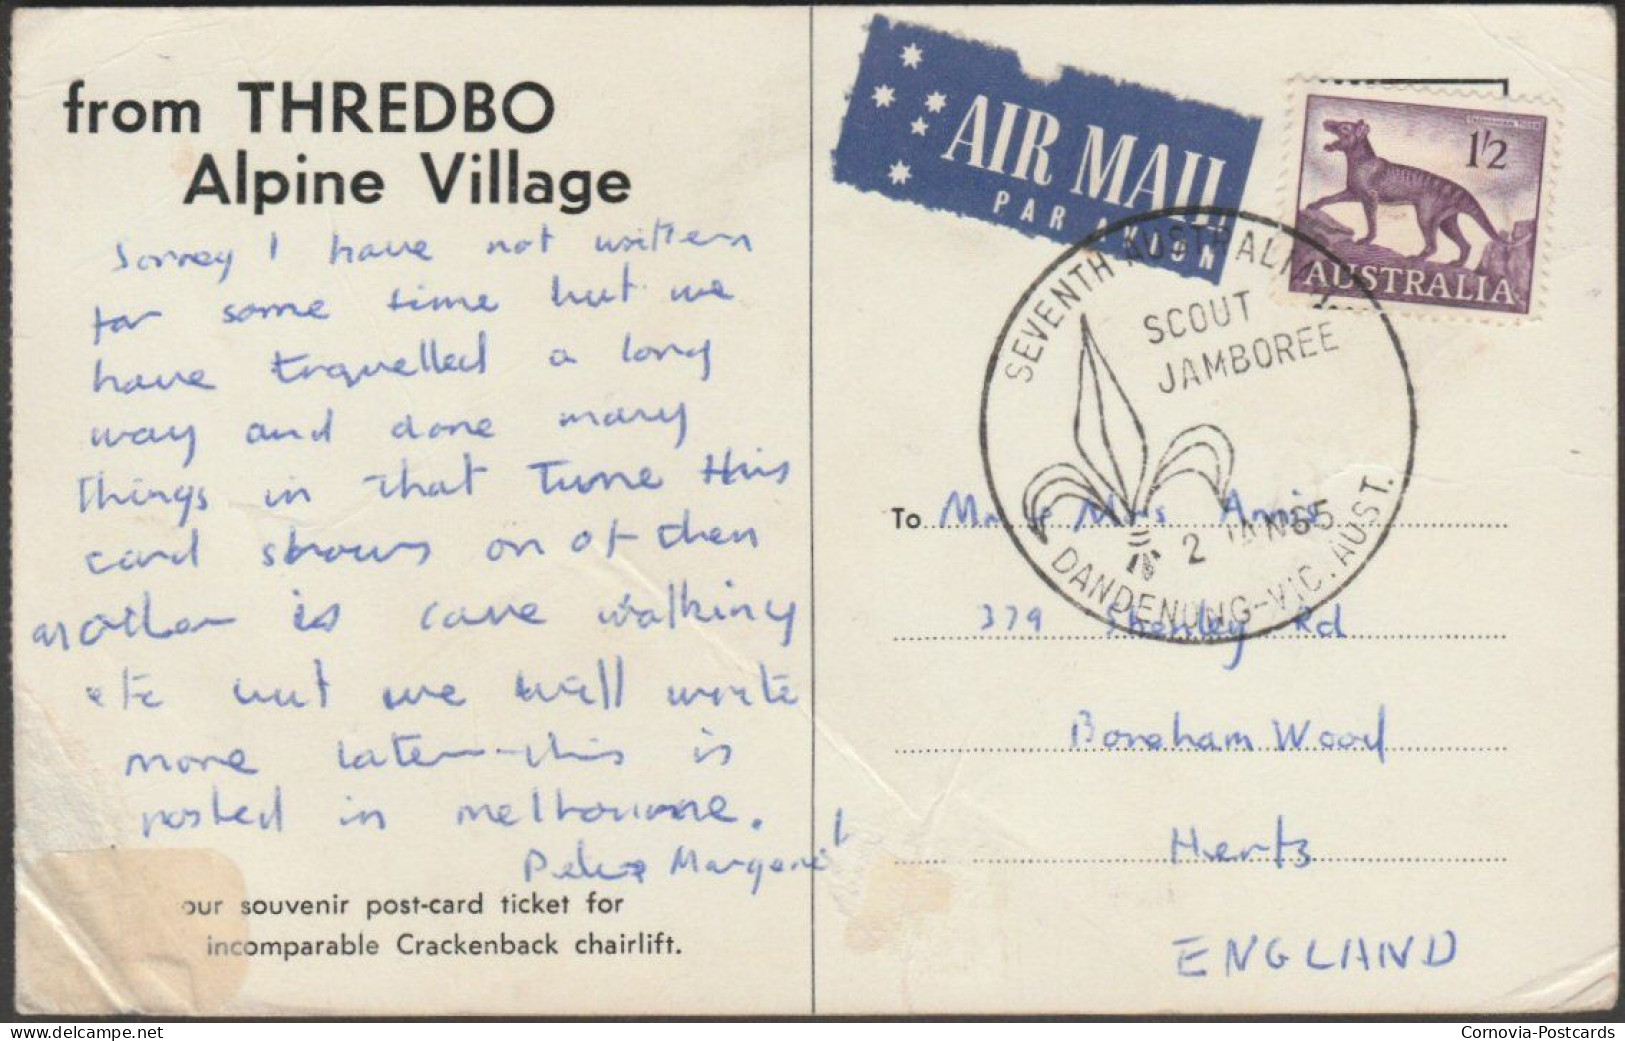 from THREDBO
Alpine Village
Sorrey I have not written
for some time but we
have travelled a long
way and done many
things in that time this
card shows on of then
another is cave walking
etc but we will write
more later this is
posted in melbourne.
our souvenir post-card ticket for
incomparable Crackenback chairlift.
AIR MAIL
PAR AVION
TASMANIAN TIGER
1/2
AUSTRALIA
SEVENTH AUSTRALIAN
SCOUT
JAMBOREE
2 JAN 65
DANDENONG-VIC. AUST.
To Mr & Mrs Annis
379 Shenley Rd
Boreham Wood
Hertz
ENGLAND
Cornovia-Postcards